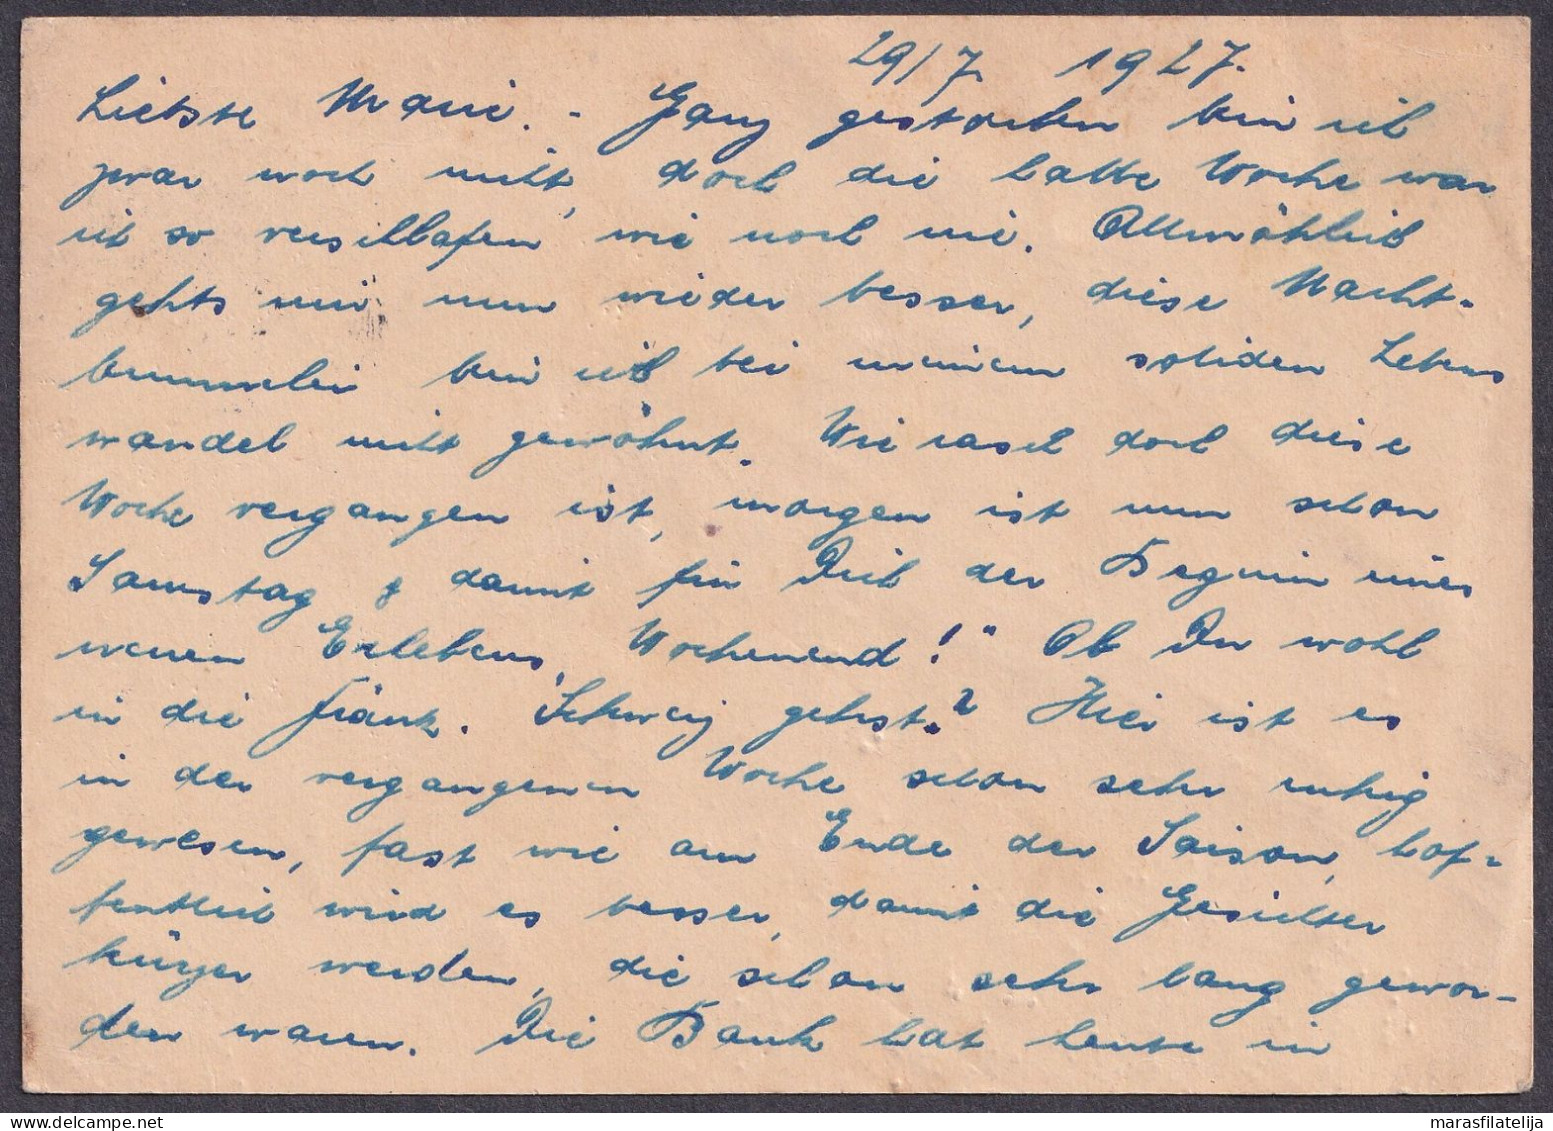 29/7. 1927.
Liebste Marie. - Ganz gestorben bin ich
zwar noch nicht, doch die halbe Woche war
ich so verschlafen wie noch nie. Allmählich
gehts mir nun wieder besser, diese Nacht-
bummelei bin ich bei meinem soliden Lebens
wandel nicht gewöhnt. Wie rasch doch diese
Woche vergangen ist, morgen ist nun schon
Samstag & damit für Dich der Beginn eines
neuen Erlebens „Wochenend!“ Ob Du wohl
in die fränk. Schweiz gehst? Hier ist es
in der vergangenen Woche schon sehr ruhig
gewesen, fast wie am Ende der Saison, hof-
fentlich wird es besser, damit die Gesichter
kürzer werden, die schon sehr lang gewor-
den waren. Die Bank hat heute in
marasfilatelija